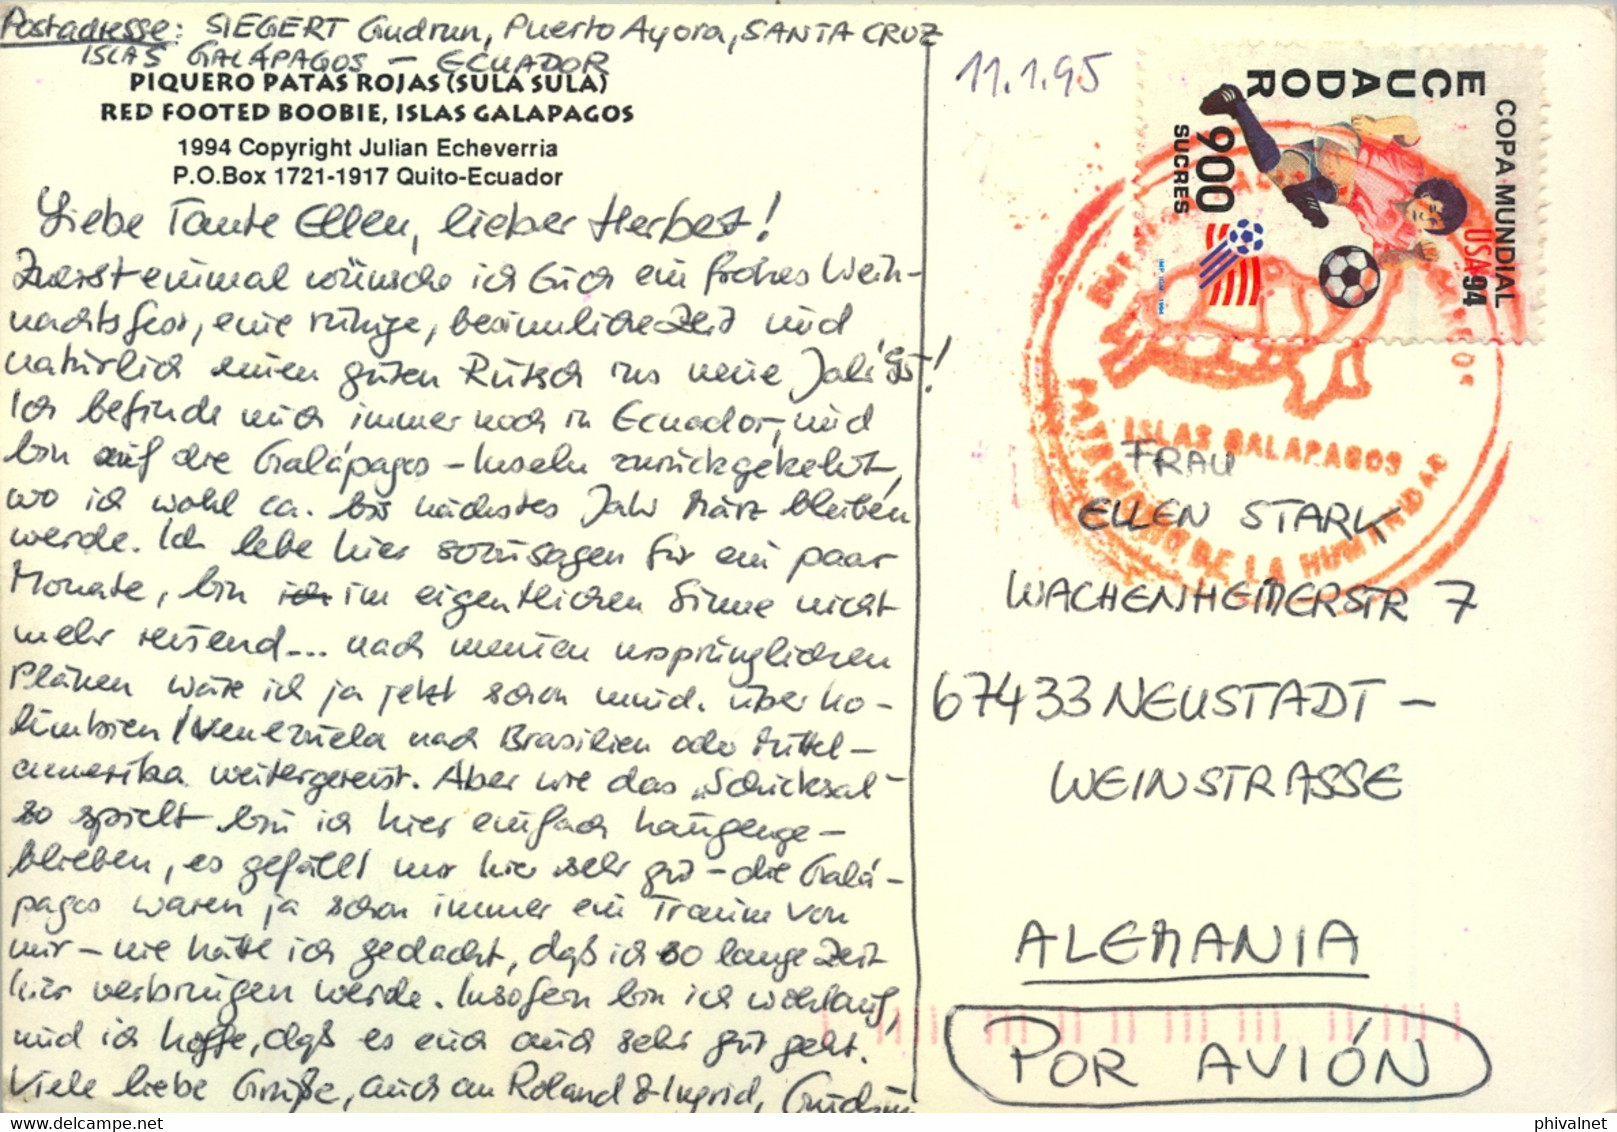 Postadresse: SIEGERT Gudrun, Puerto Ayora, SANTA CRUZ
ISLAS GALÁPAGOS – ECUADOR
PIQUERO PATAS ROJAS (SULA SULA)
RED FOOTED BOOBIE, ISLAS GALAPAGOS
1994 Copyright Julian Echeverria
P.O.Box 1721-1917 Quito-Ecuador
Liebe Tante Ellen, lieber Herbert!
Zuerst einmal wünsche ich Euch ein frohes Weih-
nachtsfest, eine ruhige, besinnliche Zeit und
natürlich einen guten Rutsch ins neue Jahr '95!
Ich befinde mich immer noch in Ecuador, und
bin auf die Galápagos-Inseln zurückgekehrt,
wo ich wohl ca. bis nächstes Jahr März bleiben
werde. Ich lebe hier sozusagen für ein paar
Monate, bin ich im eigentlichen Sinne nicht
mehr reisend... nach meinen ursprünglichen
Plänen wäre ich ja jetzt schon mind. über Ko-
lumbien/Venezuela nach Brasilien oder Mittel-
amerika weitergereist. Aber wie das „Schicksal"
so spielt bin ich hier einfach hängenge-
blieben, es gefällt mir hier sehr gut – die Galá-
pagos waren ja schon immer ein Traum von
mir – nie hätte ich gedacht, daß ich so lange Zeit
hier verbringen werde. Insofern bin ich wohlauf,
und ich hoffe, daß es euch auch sehr gut geht.
Viele liebe Grüße, auch an Roland & Ingrid, Gudrun
11.1.95
ECUADOR
COPA MUNDIAL
USA 94
900
SUCRES
ISLAS GALAPAGOS
PATRIMONIO DE LA HUMANIDAD
FRAU
ELLEN STARK
WACHENHEIMERSTR 7
67433 NEUSTADT –
WEINSTRASSE
ALEMANIA
POR AVIÓN
delcampe.net
phivalnet